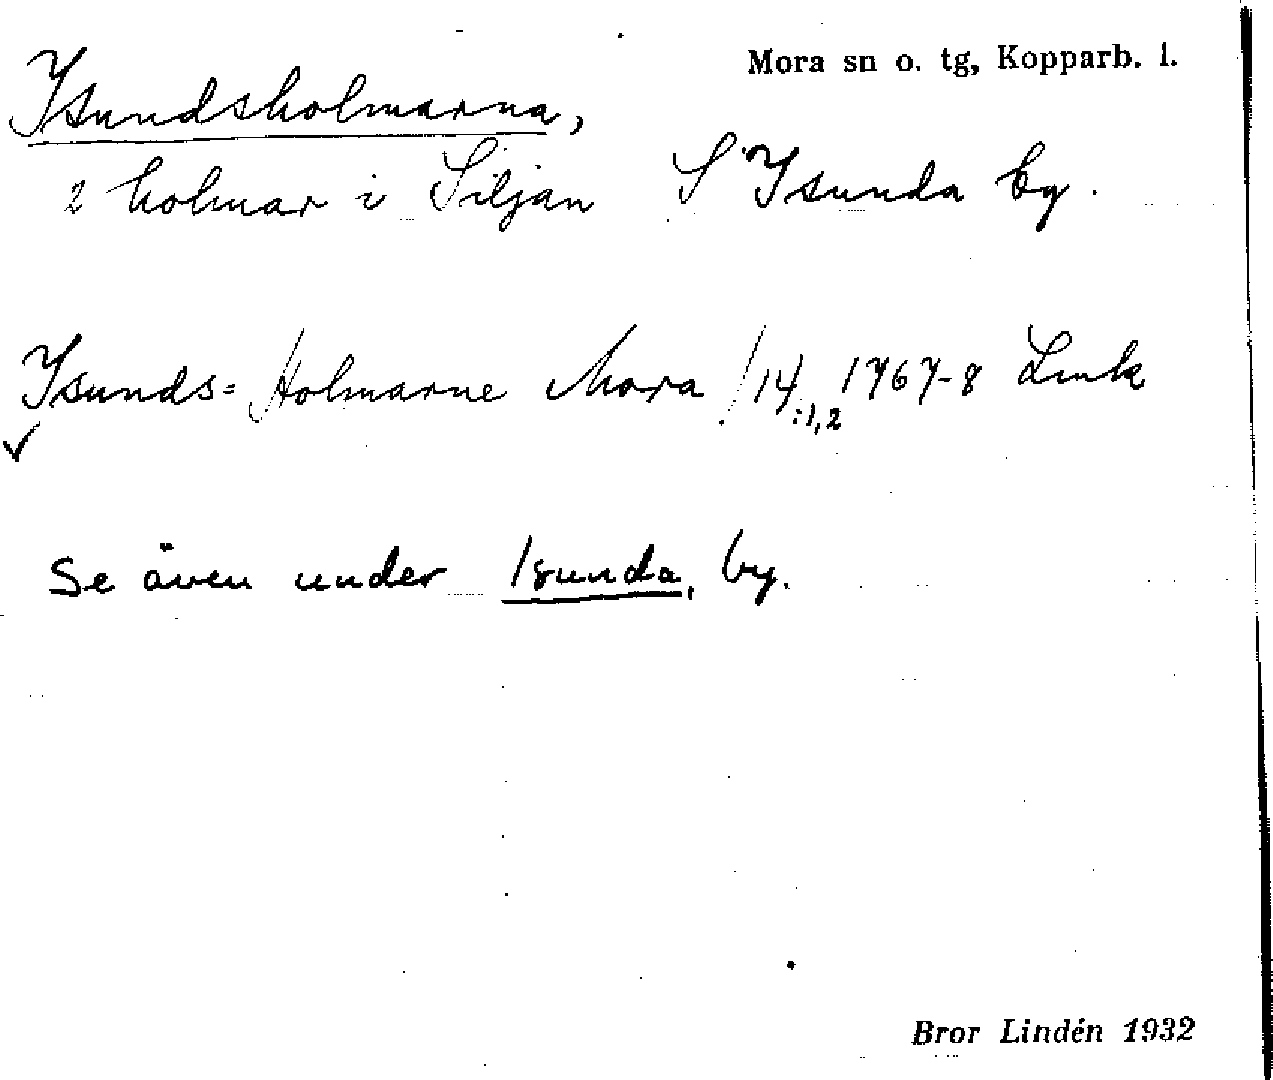 Mora sn o. tg, Kopparb. l.
Isundsholmarna,
2 holmar i Siljan S Isunda by.
Isunds= Holmarne Mora /14:1,2 1767-8 Lmk
✓
Se även under Isunda, by.
Bror Lindén 1932